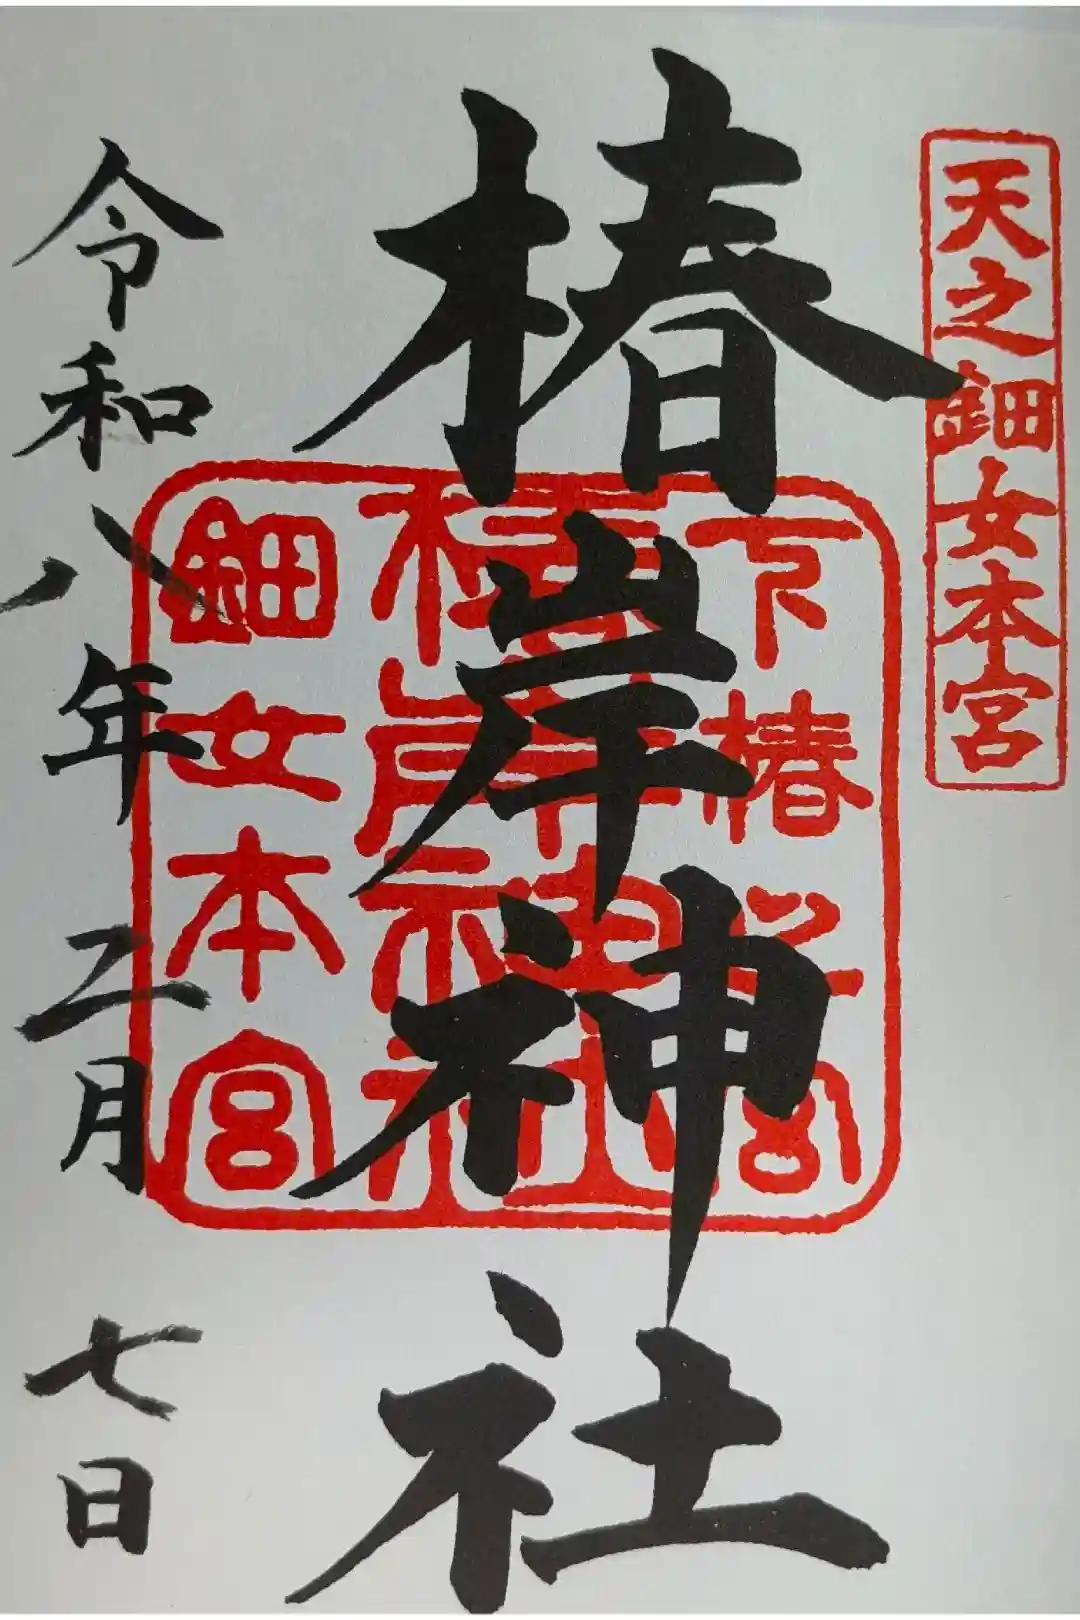 天之鈿女本宮
椿岸神社
下椿
椿岸神社
鈿女本宮
令和八年二月七日